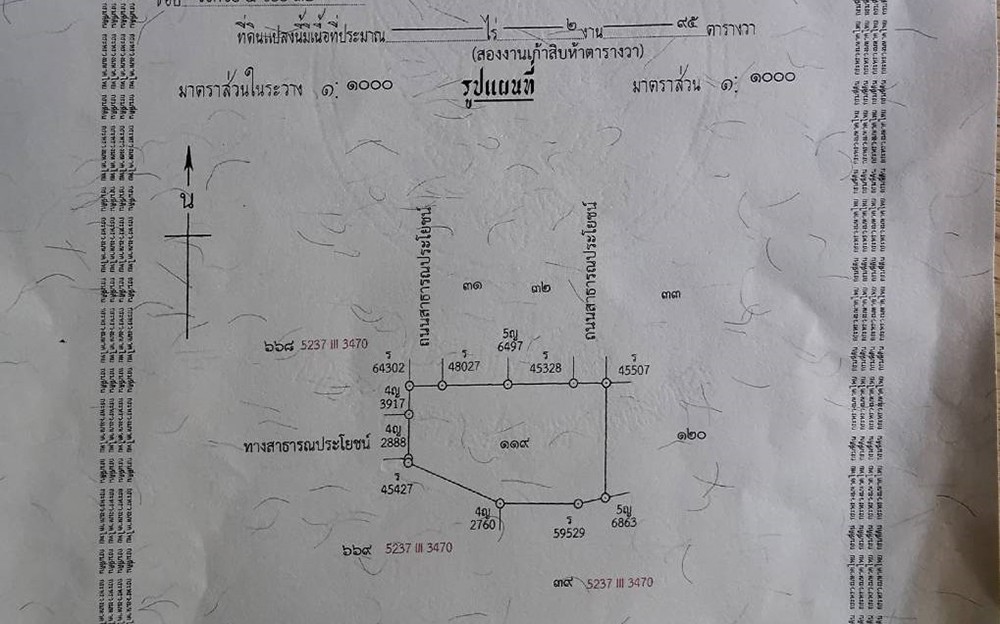 ที่ดินแปลงนี้มีเนื้อที่ประมาณ ไร่ ๒ งาน ๙๕ ตารางวา
(สองงานเก้าสิบห้าตารางวา)
มาตราส่วนในระวาง ๑: ๑๐๐๐ รูปแผนที่ มาตราส่วน ๑: ๑๐๐๐
น
ถนนสาธารณประโยชน์
ถนนสาธารณประโยชน์
๓๑ ๓๒ ๓๓
๖๖๘ 5237 III 3470
ร
64302
ร
48027
5ญ
6497
ร
45328
ร
45507
4ญ
3917
4ญ
2888
ทางสาธารณประโยชน์
๑๑๙
๑๒๐
ร
45427
4ญ
2760
ร
59529
5ญ
6863
๖๖๙ 5237 III 3470
๓๙ 5237 III 3470